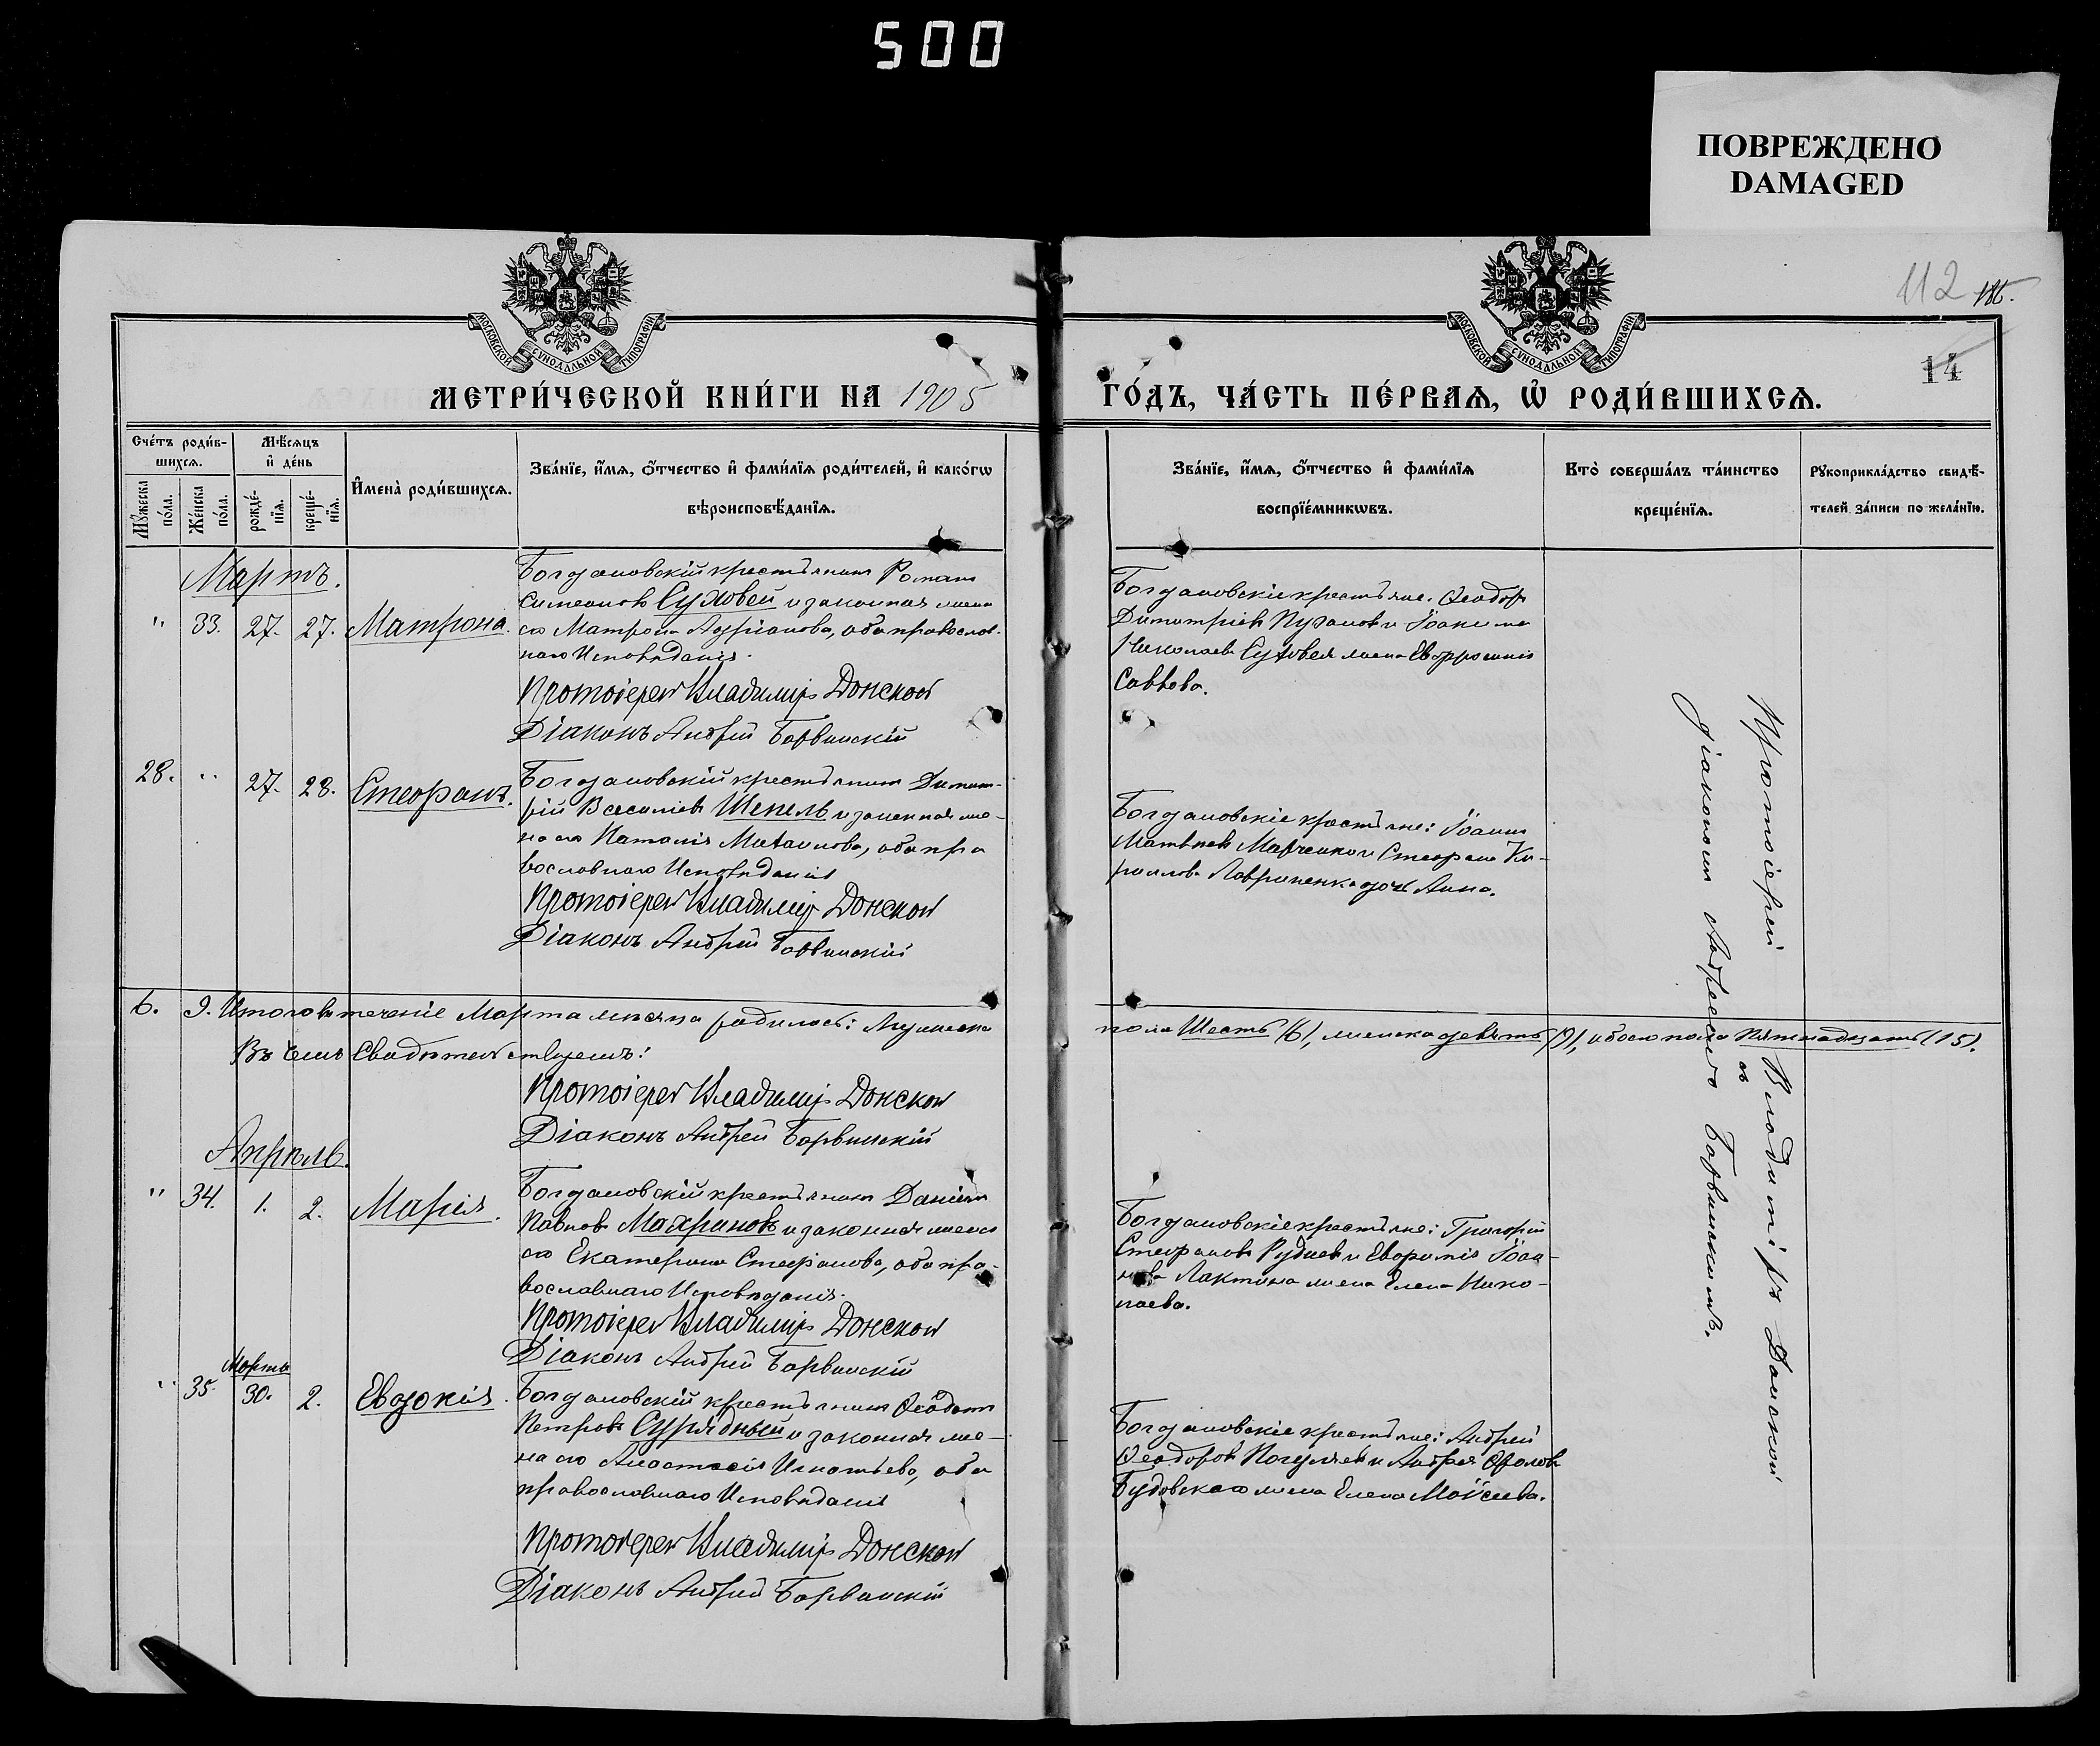 500
ПОВРЕЖДЕНО
DAMAGED
112
14
МОСКОВСКОЙ СѴНОДАЛЬНОЙ ТИПОГРАФІИ
МОСКОВСКОЙ СѴНОДАЛЬНОЙ ТИПОГРАФІИ
МЕТРИ́ЧЕСКОЙ КНИ́ГИ НА 1905 ГО́ДЪ, ЧА́СТЬ ПЕ́РВАѦ, Ѡ҆ РОДИ́ВШИХСѦ.
Счетъ роди́в-
шихсѧ.
Мѣ́сѧцъ
и҆ де́нь
Мꙋ́жеска по́ла.
Же́нска по́ла.
рожде́-
нїѧ.
креще́-
нїѧ.
И҆мена̀ роди́вшихсѧ.
Зва́нїе, и҆́мѧ, ѻ҆́тчество и҆ фами́лїѧ роди́телей, и҆ како́гѡ
вѣроисповѣ́данїѧ.
Зва́нїе, и҆́мѧ, ѻ҆́тчество и҆ фами́лїѧ
воспрїе́мникѡвъ.
Кто̀ соверша́лъ та́инство
креще́нїѧ.
Рꙋкоприкла́дство свидѣ́-
телей за́писи по жела́нїю.
Мартъ.
" 33. 27. 27. Матрона.
Богдановскій крестьянинъ Романъ
Симеоновъ Суховей и законная жена
его Матрона Адріанова, оба православ-
наго Исповѣданія.
Протоіерей Владиміръ Донской
Діаконъ Андрей Барвинскій
Богдановскіе крестьяне: Ѳеодоръ
Димитріевъ Пузановъ и Іоакима
Николаева Суховея жена Евфросинія
Саввова.
28. " 27. 28. Стефанъ.
Богдановскій крестьянинъ Димит-
рій Василіевъ Шепель и законная же-
на его Наталія Михаилова, оба пра
вославнаго Исповѣданія
Протоіерей Владиміръ Донской
Діаконъ Андрей Барвинскій
Богдановскіе крестьяне: Іоаннъ
Матѳеевъ Марченко и Стефана Ки-
риллова Лавриненка дочь Анна.
6. 9. Итого въ теченіе Марта мѣсяца родилось: Мужеска
пола Шесть (6), женска девять (9), обоего пола Пятнадцать (15).
Въ чемъ Свидѣтельствуемъ:
Протоіерей Владиміръ Донской
Діаконъ Андрей Барвинскій
Апрѣль.
" 34. 1. 2. Марія.
Богдановскій крестьянинъ Даніилъ
Павловъ Махриновъ и законная жена
его Екатерина Стефанова, оба пра-
вославнаго Исповѣданія.
Протоіерей Владиміръ Донской
Діаконъ Андрей Барвинскій
Богдановскіе крестьяне: Григорій
Стефановъ Рудневъ и Евфимія Іоан-
нова Лактіона жена Елена Нико-
лаева.
" 35. Марта 30. 2. Евдокія.
Богдановскій крестьянинъ Ѳеодотъ
Петровъ Сурядный и законная же-
на его Анастасія Игнатьева, оба
православнаго Исповѣданія
Протоіерей Владиміръ Донской
Діаконъ Андрей Барвинскій
Богдановскіе крестьяне: Андрей
Ѳеодоровъ и Андрея
Будовскаго жена Елена Моисеева.
Протоіерей Владиміръ Донской
съ
діакономъ Андреемъ Барвинскимъ.